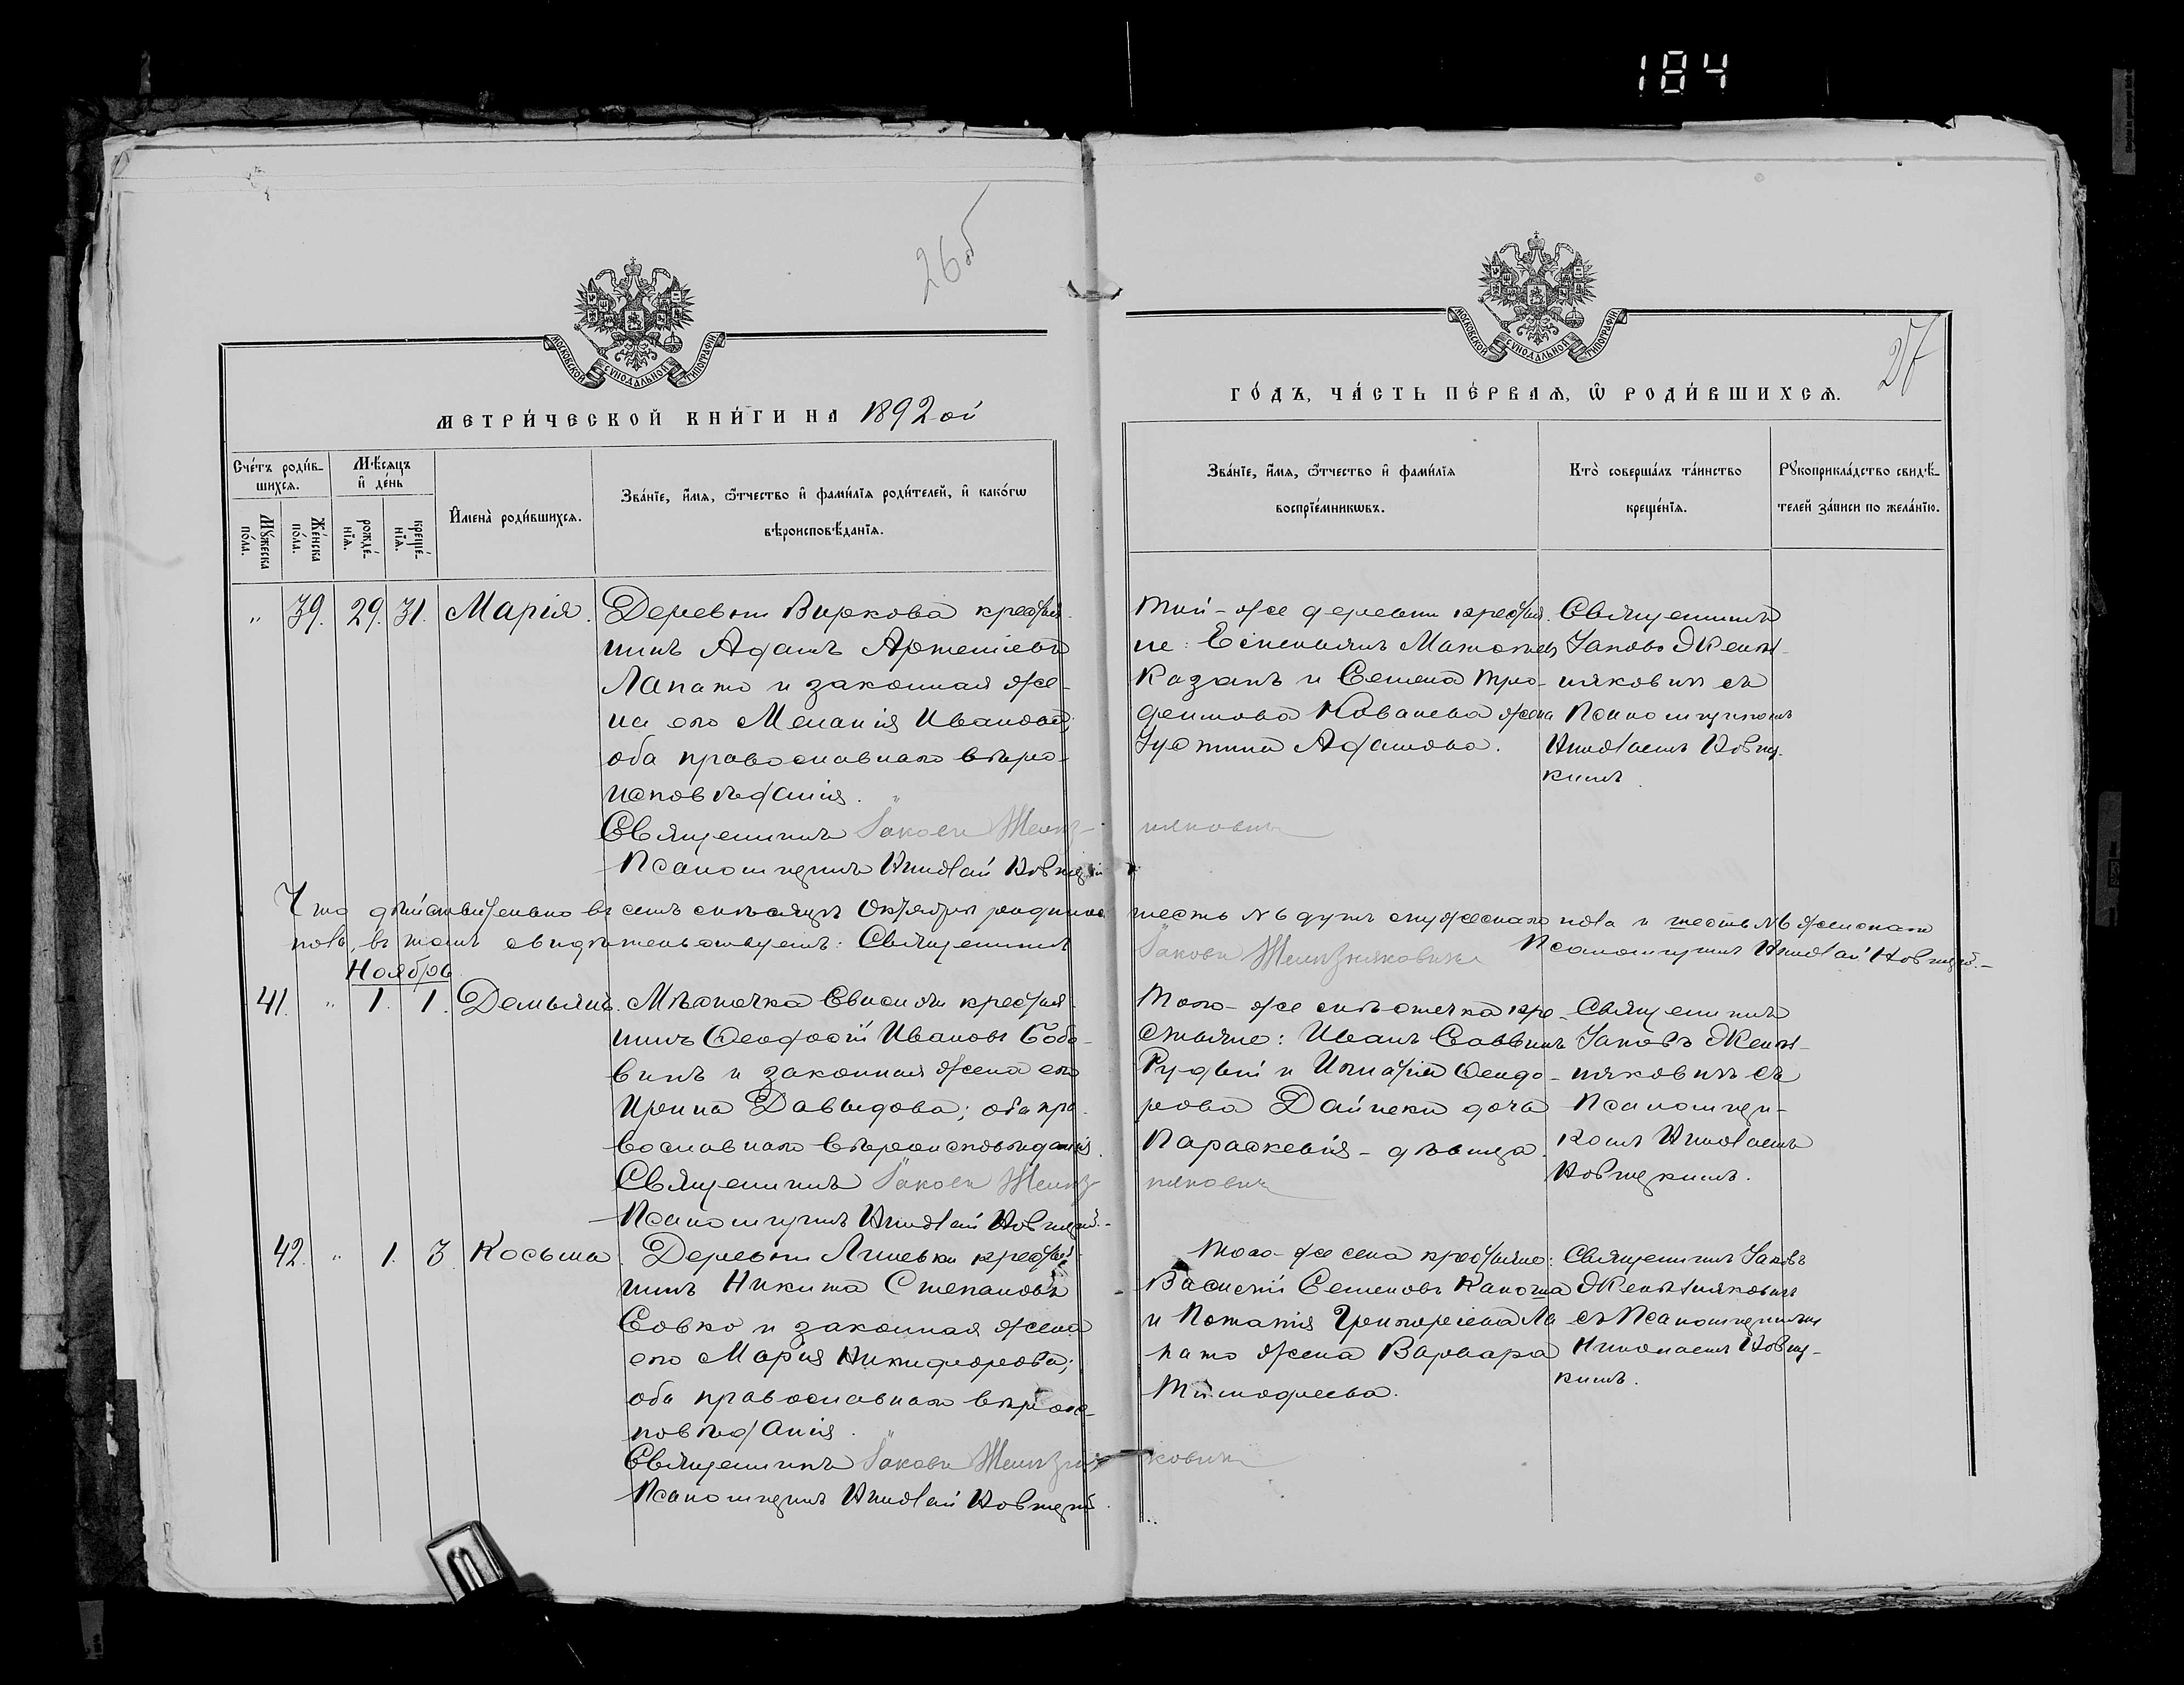 184
26об
27
МОСКОВСКОЙ СУНОДАЛЬНОЙ ТИПОГРАФІИ
МОСКОВСКОЙ СУНОДАЛЬНОЙ ТИПОГРАФІИ
МЕТРИ́ЧЕСКОЙ КНИ́ГИ НА 1892-ой
ГО́ДЪ, ЧА́СТЬ ПЕ́РВАѦ, Ѿ РОДИ́ВШИХСѦ.
Сче́тъ роди́в-
шихсѧ.
Мѣ́сѧцъ
и҆ де́нь
Му́жеска по́ла.
Же́нска по́ла.
рожде́-нїѧ.
креще́-нїѧ.
И҆мена̀ роди́вшихсѧ.
Зва́нїе, и҆́мѧ, ѻ҆́тчество и҆ фами́лїѧ роди́телей, и҆ како́гѡ
вѣроисповѣ́данїѧ.
Зва́нїе, и҆́мѧ, ѻ҆́тчество и҆ фами́лїѧ
воспрїе́мникѡвъ.
Кто̀ соверша́лъ та́инство
креще́нїѧ.
Рꙋкоприкла́дство свидѣ́-
телей за́писи по жела́нїю.
" 39. 29. 31. Марія.
Деревни Виркова крестья-
нинъ Адамъ Артеміевъ
Лапато и законная же-
на его Меланія Иванова;
оба православнаго вѣро-
исповѣданія.
Священникъ Іаковъ Желѣз-
няковичъ
Псаломщикъ Николай Новицкій
Той-же деревни крестья-
не: Емельянъ
Казакъ и Семена Тро-
фимова Ковалева жена
Іустина Адамова.
Священникъ
Іаковъ Желѣз-
няковичъ съ
Псаломщикомъ
Николаемъ Новиц-
кимъ.
Что дѣйствительно въ семъ мѣсяцѣ Октябрѣ родилось шесть №6 душъ мужескаго пола и шесть №6 женскаго
пола, въ томъ свидѣтельствуемъ: Священникъ Іаковъ Желѣзняковичъ Псаломщикъ Николай Новицкій.
Ноябрь
41. " 1. 1. Демьянъ.
Мѣстечка Свислочи крестья-
нинъ Ѳеодосій Ивановъ Бобо-
викъ и законная жена его
Ирина Давыдова; оба пра-
вославнаго вѣроисповѣданія.
Священникъ Іаковъ Желѣз
няковичъ
Псаломщикъ Николай Новицкій.
Того-же мѣстечка кре-
стьяне: Иванъ Саввинъ
Рудый и Игнатія Ѳеодо-
рова Дайнеки дочь
Параскевія - дѣвица.
Священникъ
Іаковъ Желѣз-
няковичъ съ
Псаломщи-
комъ Николаемъ
Новицкимъ.
42. " 1. 3. Косьма.
Деревни крестья-
нинъ Никита Степановъ
Совко и законная жена
его Марія Никифорова;
оба православнаго вѣроис-
повѣданія.
Священникъ Іаковъ Желѣзня
ковичъ
Псаломщикъ Николай Новицкій.
Того-же села крестьяне:
Василій Семеновъ Капоша
и Потапія Григоріева Ла
пато жена Варвара
Тимофеева.
Священникъ Іаковъ
Желѣзняковичъ
съ Псаломщикомъ
Николаемъ Новиц-
кимъ.